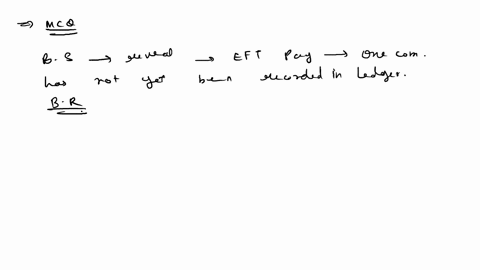 ⇒ MCQ
B.S → reveal → EFT Pay → One com.
has not yet been recorded in Ledger.
B.R